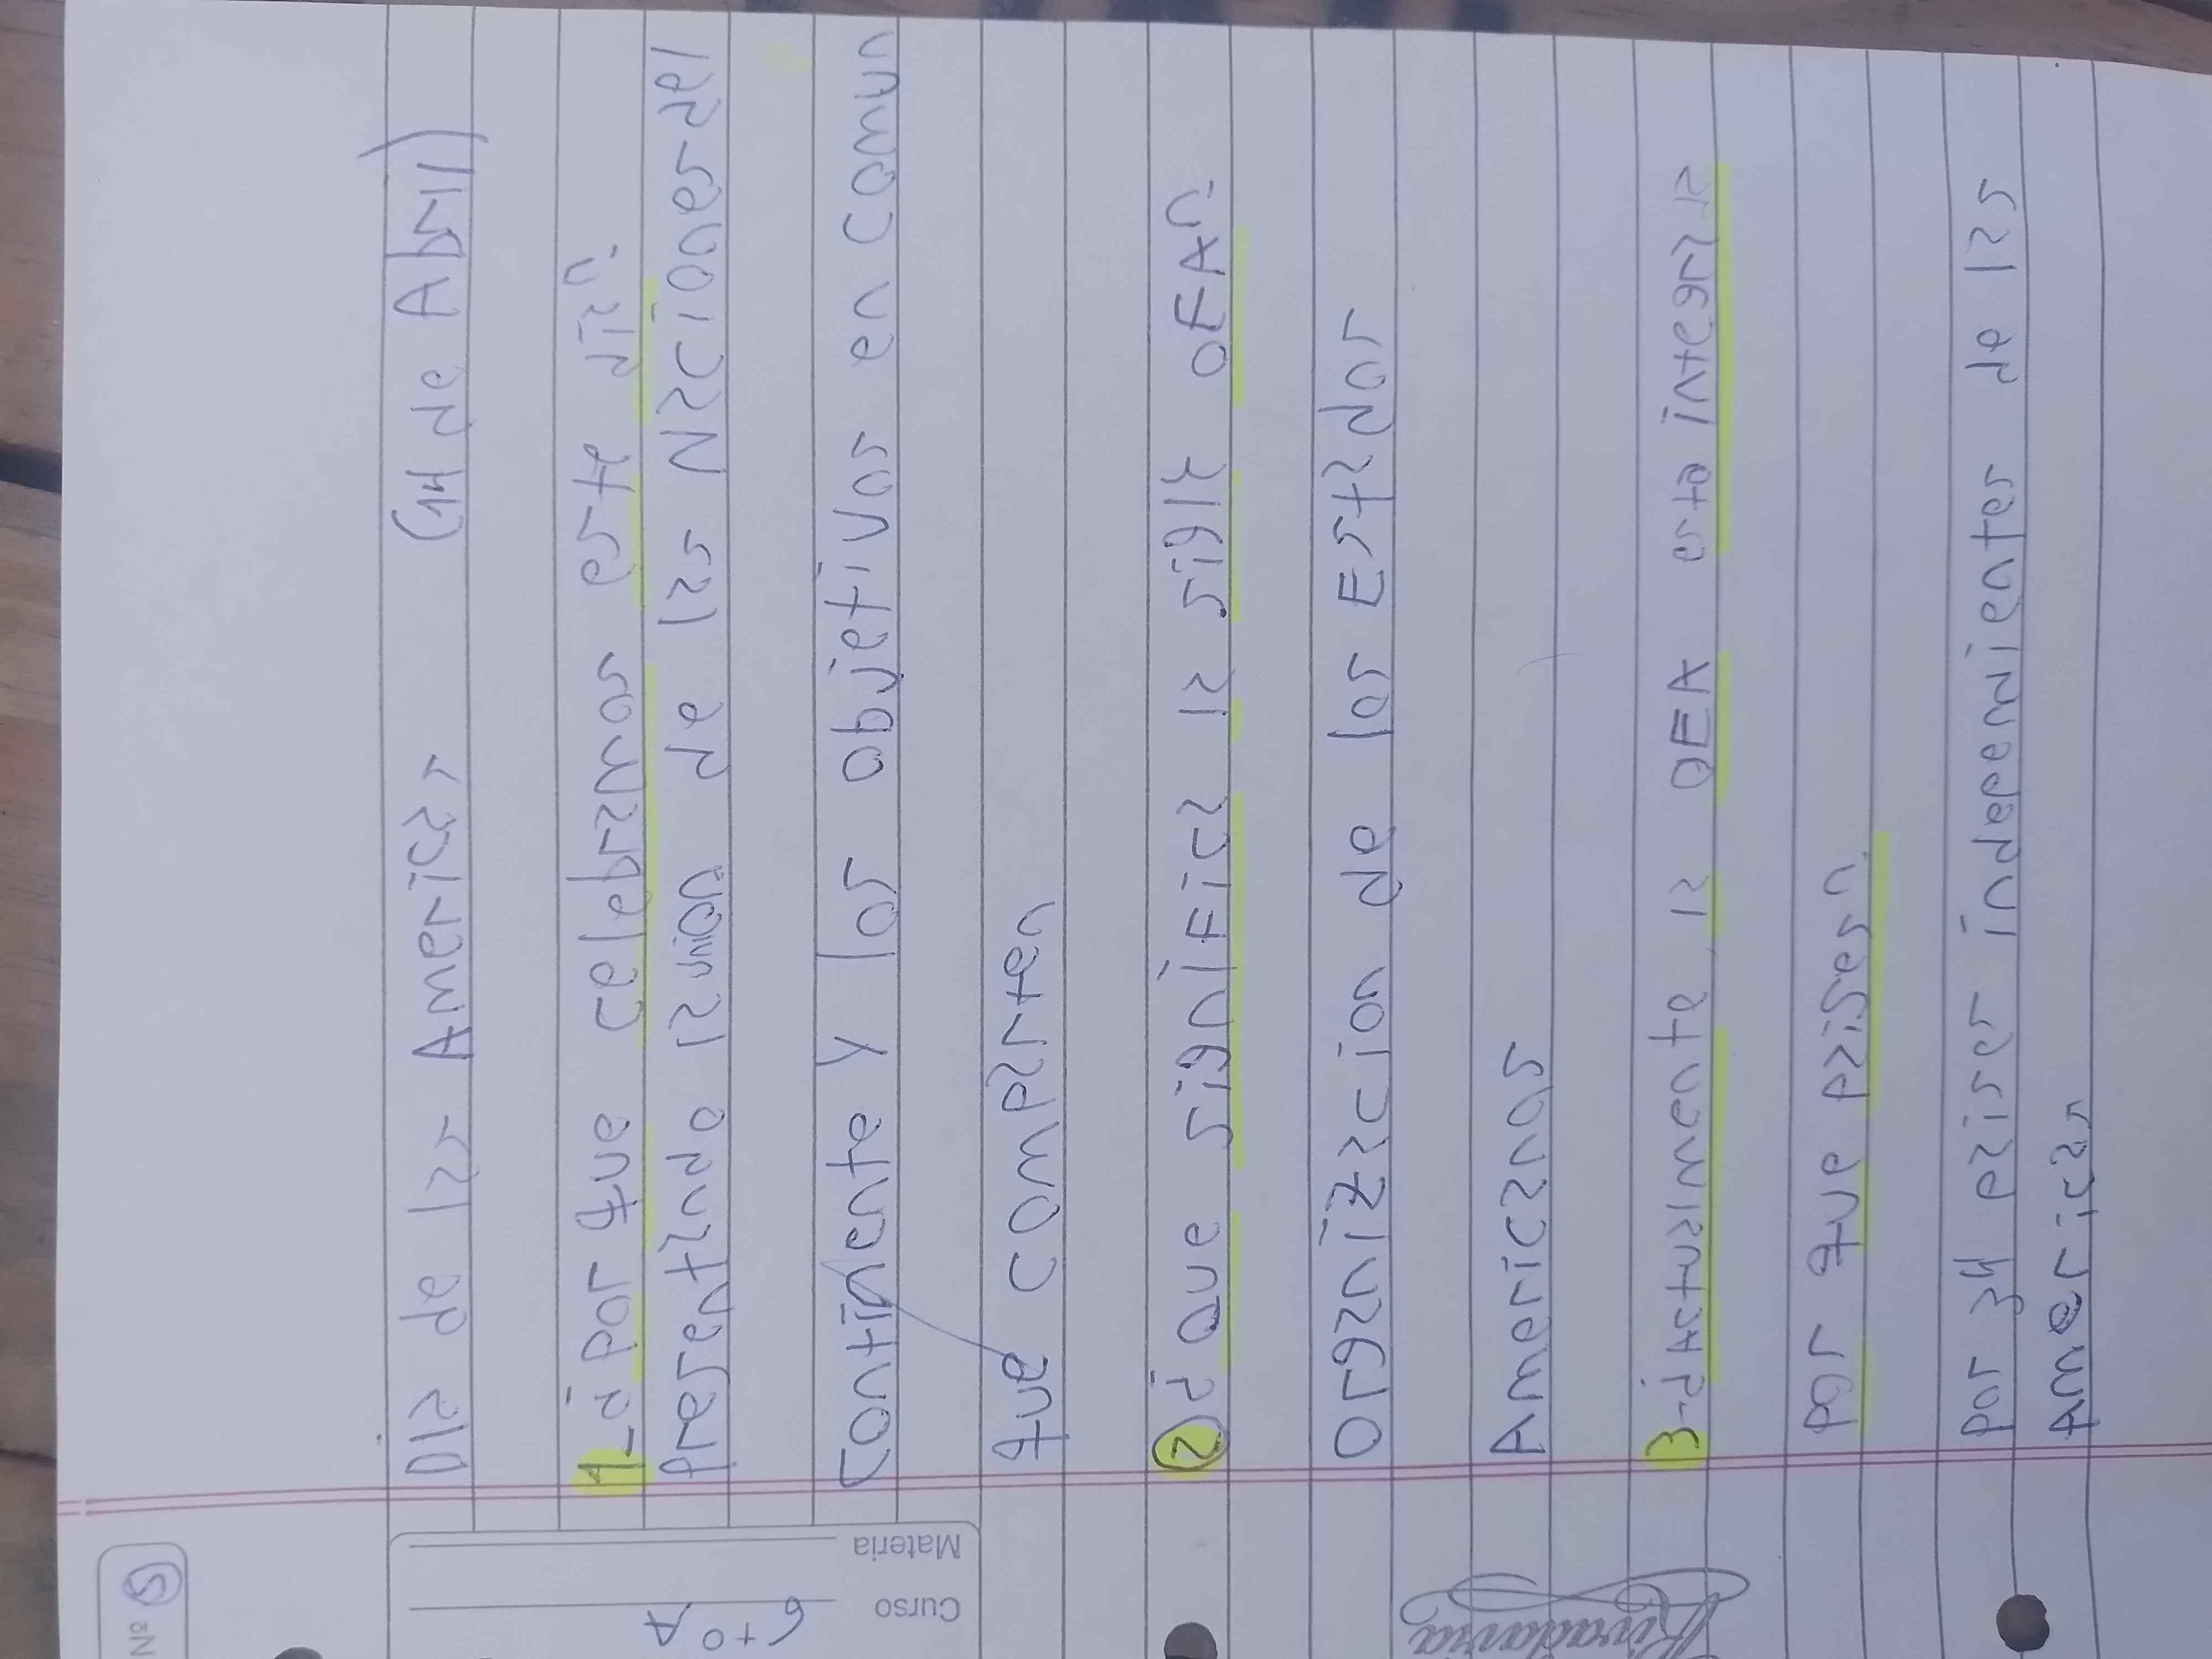 Nº 5
Curso 6to A
Materia
Rivadavia
Dia de las Americas (14 de Abril)
1-¿por que celebramos este dia?
presentando la union de las Naciones del
Continente y los objetivos en comun
que comparten
2 ¿Que significa la sigla OEA?
Organizacion de los Estados
Americanos
3-¿Actualmente, la OEA esta integrada
por que paises?
por 34 paises independientes de las
Americas